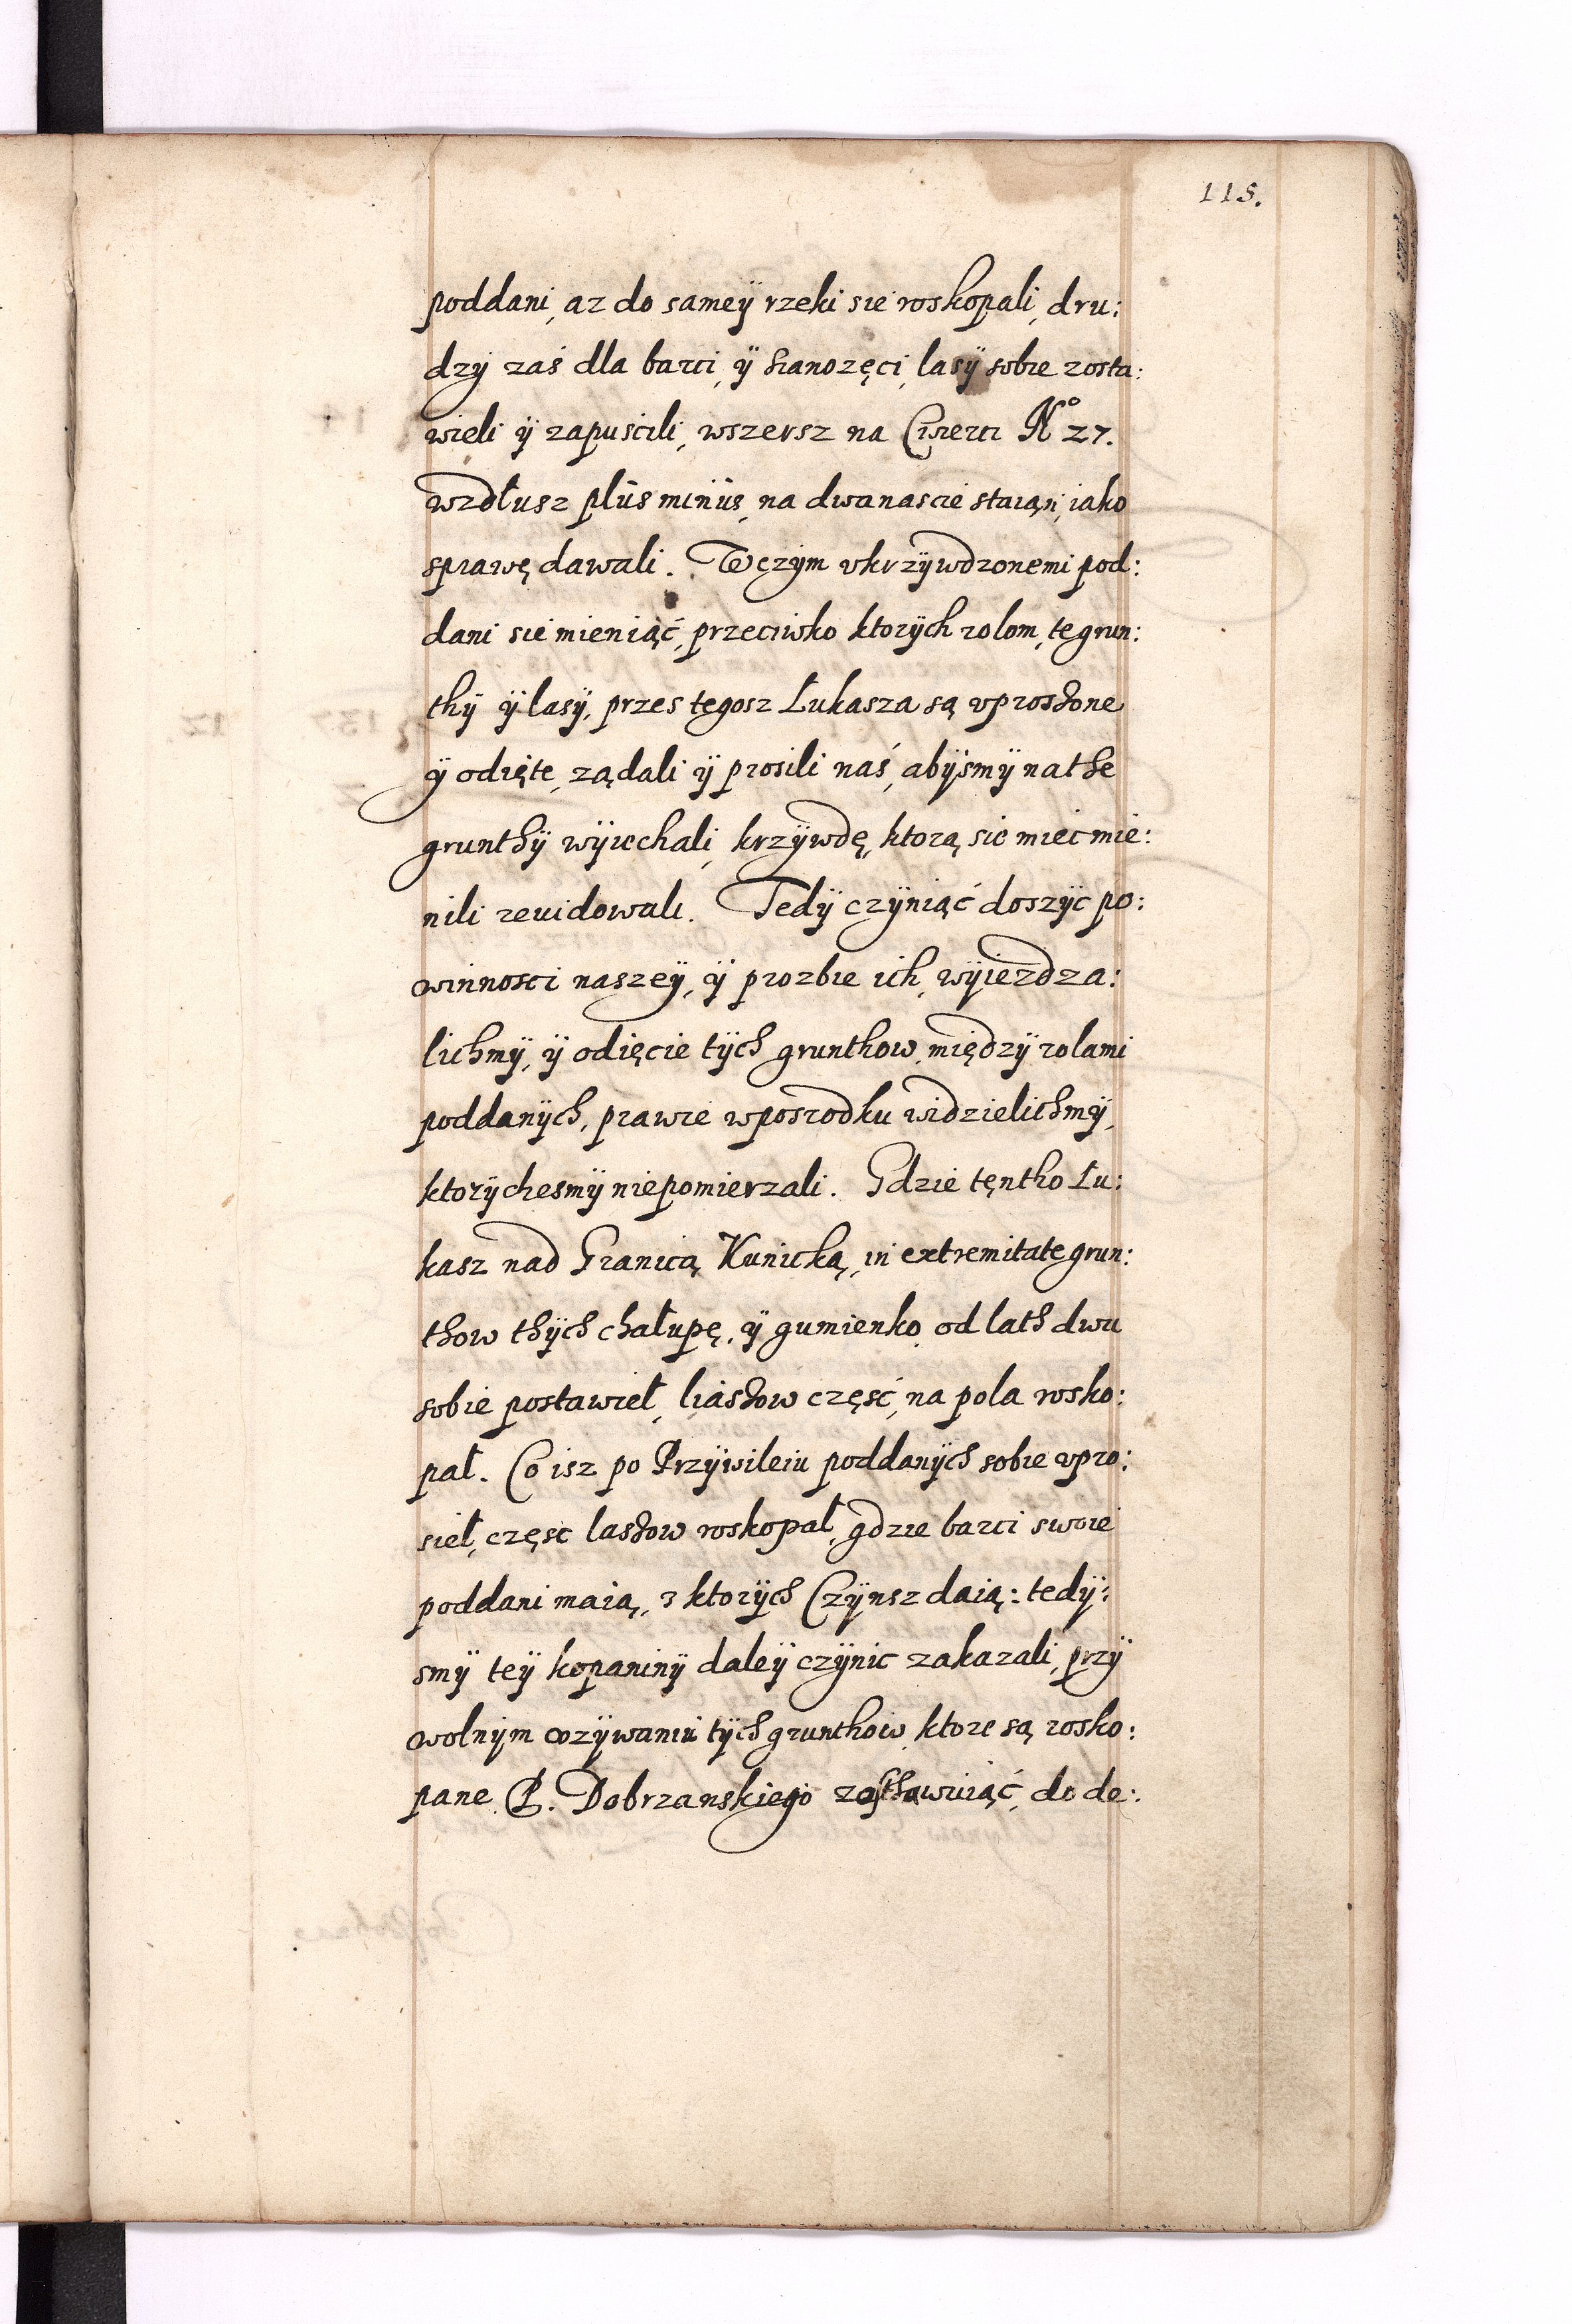 115.
poddani, az do sameÿ rzeki sie roskopali, dru:
dzÿ zaś dla barci, ÿ sianozęci, lasÿ sobie zosta:
wieli ÿ zapuscili, wszersz na Cwierci No 27.
wzdłusz plus minus, na dwanascie staian, iako
sprawę dawali. W czÿm vkrzÿwdzonemi pod:
dani sie mieniąć, przeciwko ktorÿch rolom, te grun:
thÿ ÿ lasÿ, przes tegosz Łukasza są vproszone
ÿ odięte, ządali ÿ prosili naś, abÿsmÿ na the
grunthÿ wÿiechali, krzÿwdę, ktorą sie miec mie:
nili reuidowali. Tedÿ czÿniąć doszÿc po:
winnosci naszeÿ, ÿ prozbie ich, wÿiezdza:
lichmÿ, ÿ odięcie tÿch grunthow, międzÿ rolami
poddanÿch, prawie wposrodku widzielichmÿ,
ktorÿchesmÿ niepomierzali. Gdzie tęntho Łu:
kasz nad Granicą Kunicką, in extremitate grun:
thow thÿch chałupę, ÿ gumienko, od lath dwu
sobie postawieł, liassow częsć, na pola rosko:
pał. Co isz po Przÿwileiu poddanÿch sobie vpro:
sieł, częsc lassow roskopał, gdzie barci swoie
poddani maią, z ktorÿch Czÿnsz daią: tedÿ:
smÿ teÿ kopaninÿ daleÿ czÿnic zakazali, przÿ
wolnÿm vzÿwaniu tÿch grunthow, ktore są rosko:
pane P. Dobrzanskiego zosthawuiąć, do de: